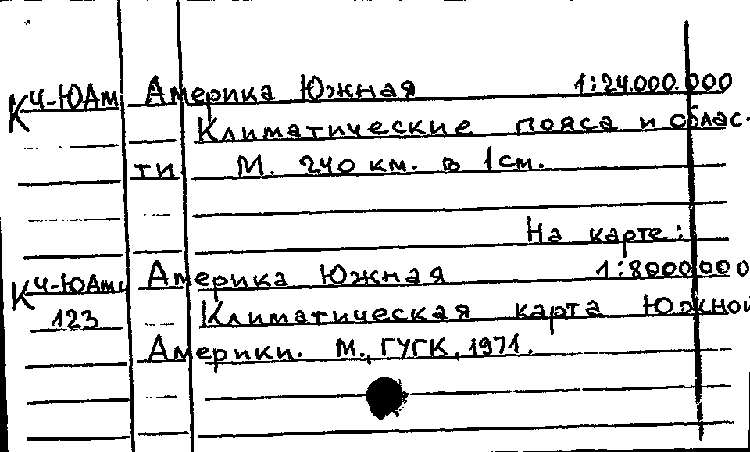 К Ч-ЮАм Америка Южная 1:24.000.000
Климатические пояса и облас-
ти М. 240 км. в 1 см.
На карте:
К Ч-ЮАм Америка Южная 1:8000000
123 Климатическая карта Южной
Америки. М., ГУГК, 1971.